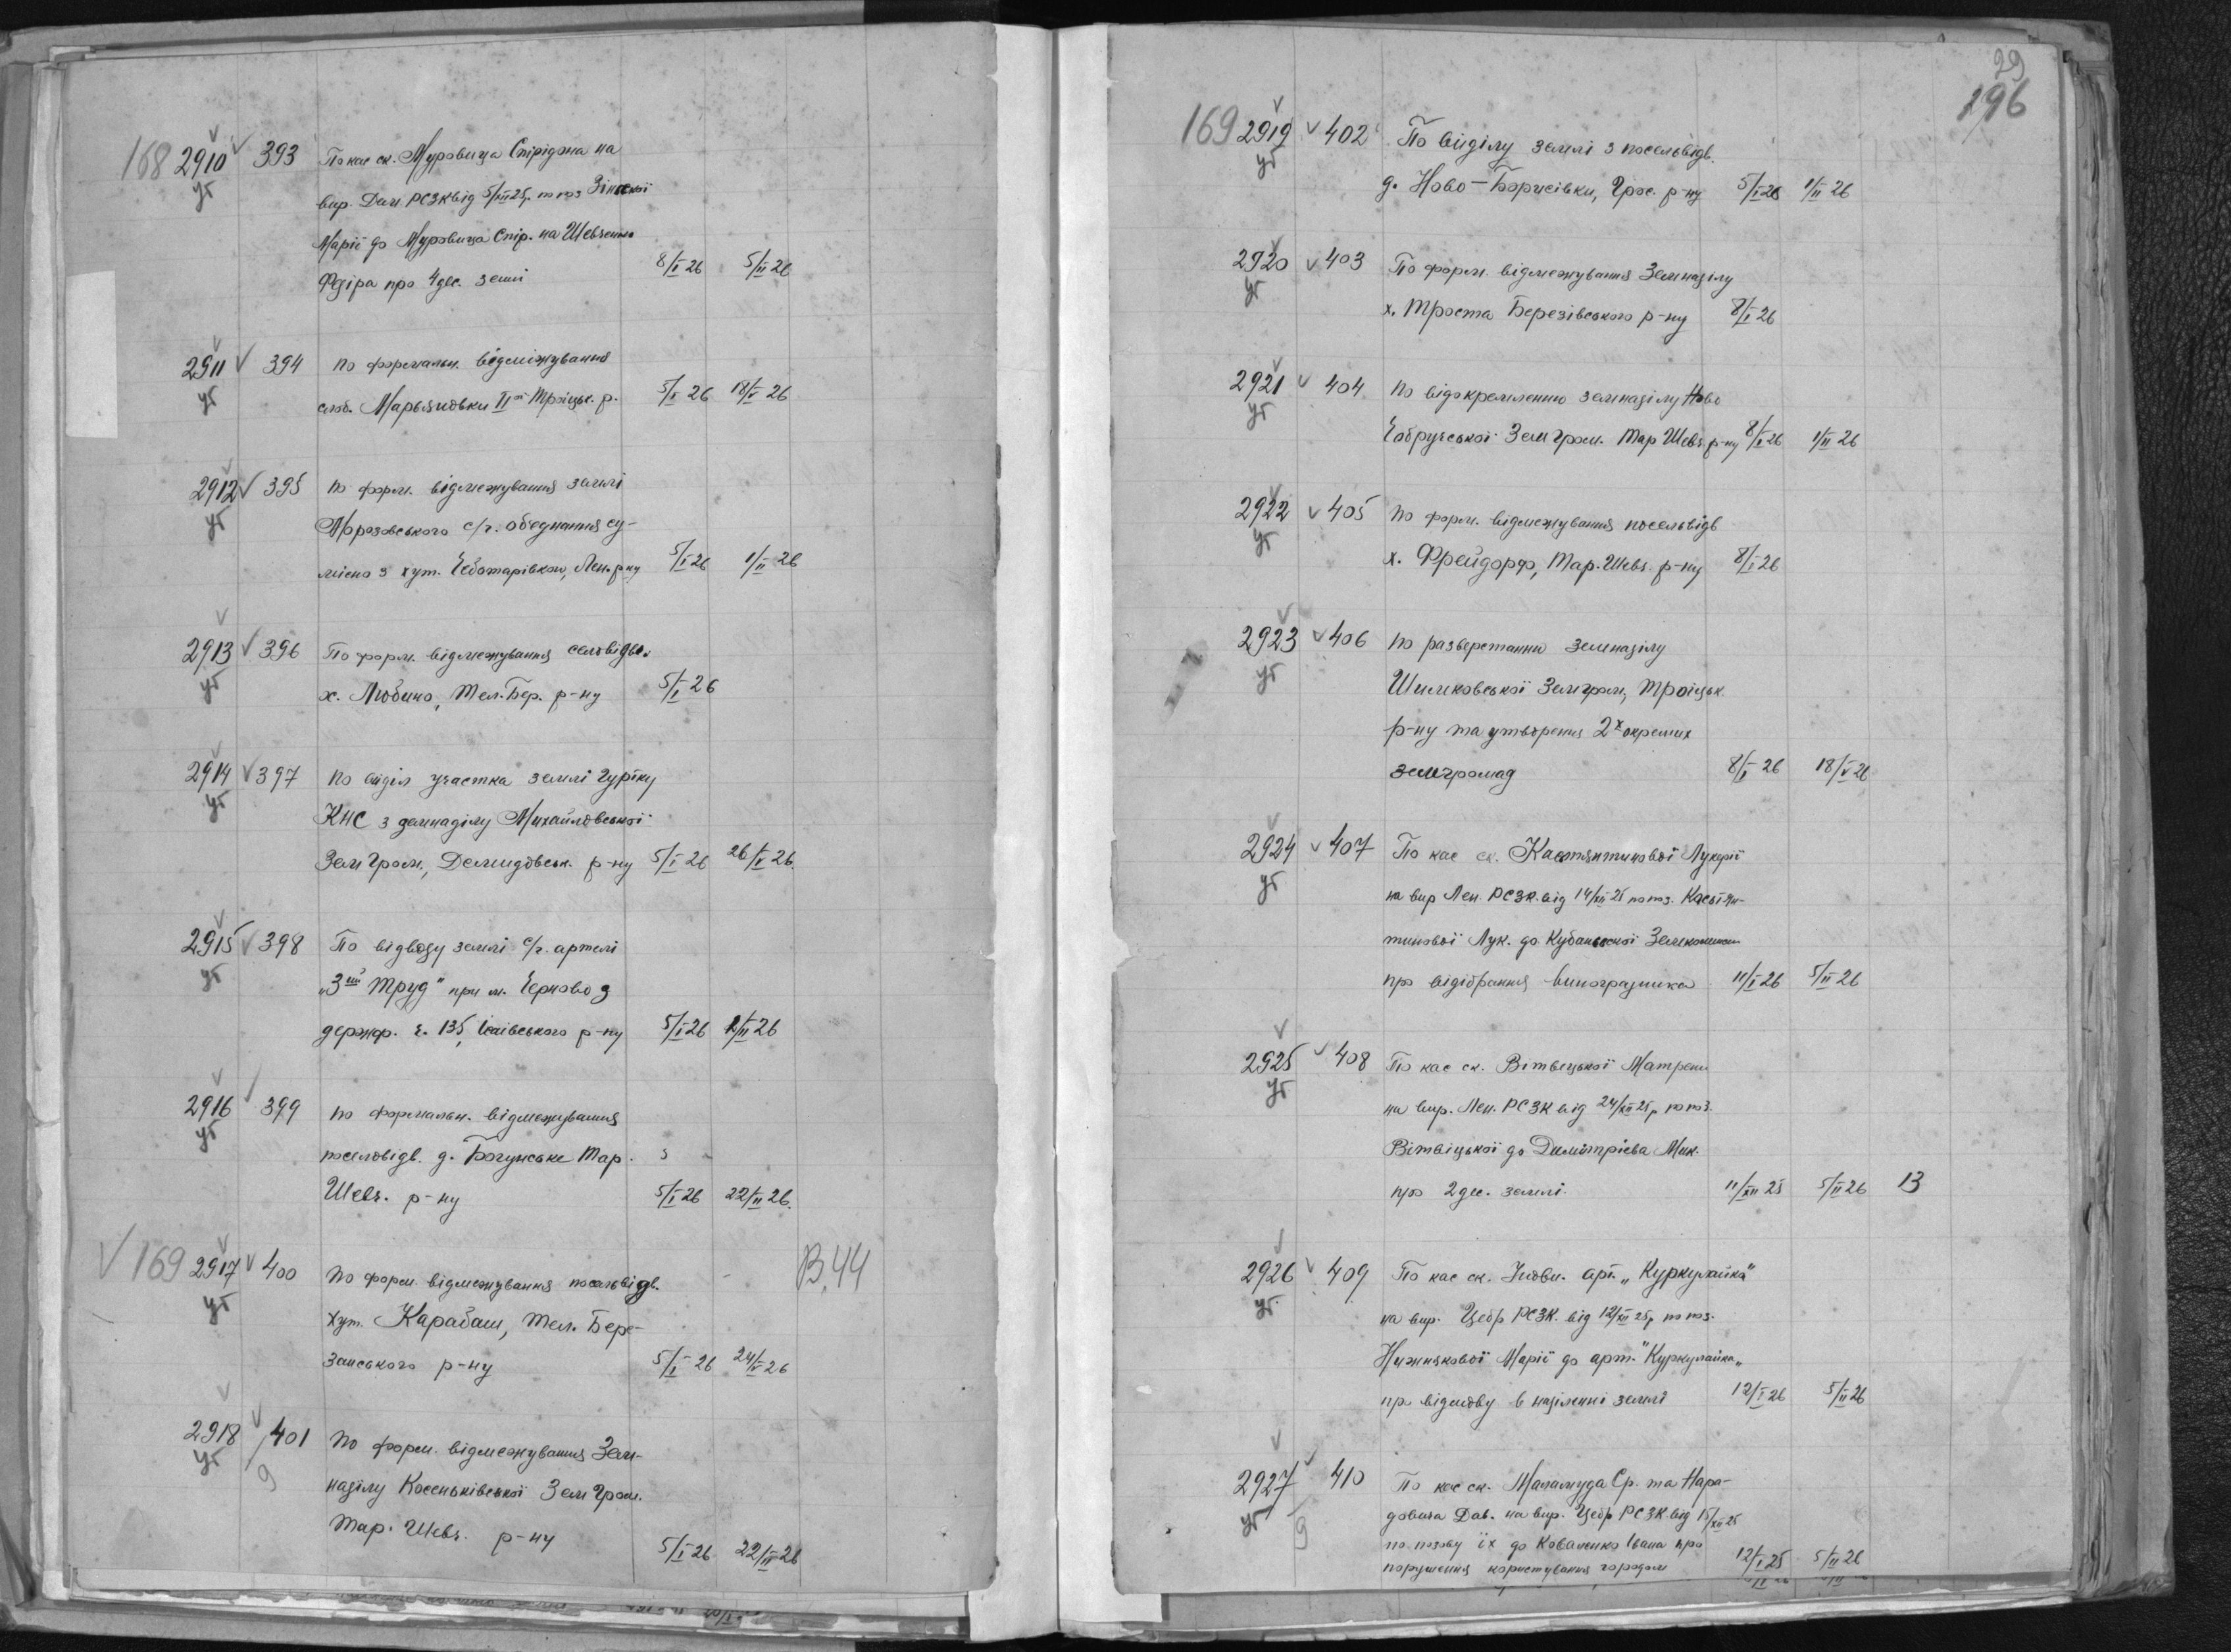 168 2910 393 По кас ск. Муровица Спірідона на
уг вир. Дем. РСЗК від 5/XII 25р. по поз Зінської
Марії до Муровица Спір. на Шевченко
Фдіра про 4 дес. землі 8/I 26 5/II 26
2911 394 по формальн. відміжування
уг слоб. Марьяновки II Троіцьк. р. 5/I 26 18/V 26
2912 395 по форм. відмежування землі
уг Морозовського с/г. обєднання су-
місно з хут. Чеботарівкою, Лен. р-ну 5/I 26 1/II 26
2913 396 По форм. відмежування селовідв.
уг х. Любино, Тил. Бер. р-ну 5/I 26
2914 397 по виділ участка землі гуртку
уг КНС з земнаділу Михайловської
Зем Гром., Демидовськ. р-ну 5/I 26 26/V 26.
2915 398 По відводу землі с/г. артелі
уг „3ий Труд" при м. Черново з
держф. ч. 135, Ісаівського р-ну 5/I 26 1/II 26
2916 399 по формальн. відмежування
уг поселовідв. д. Богунське Тар.
Шевч. р-ну 5/I 26 22/II 26.
169 2917 400 По форм. відмежування посельвідв. В.44
уг хут. Карабаш, Тил. Бере-
занського р-ну 5/I 26 24/V 26
2918 401 По форм. відмежування Зем-
уг 9 наділу Косеньківської Зем Гром.
Тар. Шевч. р-ну 5/I 26 22/II 26
29
196
169 2919 402 По виділу землі з посельвідв.
уг д. Ново-Борисівки, Грос. р-ну 5/I 26 1/II 26
2920 403 По форм. відмежування Земнаділу
уг х. Троста Березівського р-ну 8/I 26
2921 404 по відокремленню земнаділу Ново
уг Чобручської Зем Гром. Тар Шевч. р-ну 8/I 26 1/II 26
2922 405 по форм. відмежування посельвідв
уг х. Фрейдорф, Тар. Шевч. р-ну 8/I 26
2923 406 по разверстанню земнаділу
уг Шимковської Земгром, Троіцьк.
р-ну та утворення 2х окремих
земгромад 8/I 26 18/V 26
2924 407 По кас ск. Кастянтинової Лукерії
уг на вир Лен. РСЗК. від 14/XII 25 по поз. Костян-
тинової Лук. до Кубанської Земкоммни
про відібрання виноградника 11/I 26 5/II 26
2925 408 По кас ск. Вітвецької Матрени
уг на вир. Лен. РСЗК від 24/XII 25р по поз.
Вітвіцької до Димитрієва Мик.
про 2 дес. землі. 11/XII 25 5/II 26 13
2926 409 По кас ск. арт. „Куркулайка"
уг на вир. Цебр РСЗК. від 12/XII 25р по поз.
Нижникової Марії до арт. "Куркулайка„
про відмову в наділенні землі 12/I 26 5/II 26
2927 410 По кас ск. Маламуда Ср. та Нара-
уг 9 довича Дав. на вир. Цебр РСЗК від 15/XII 25
по позову їх до Коваленко Івана про
порушення користування городом 12/I 25 5/II 26